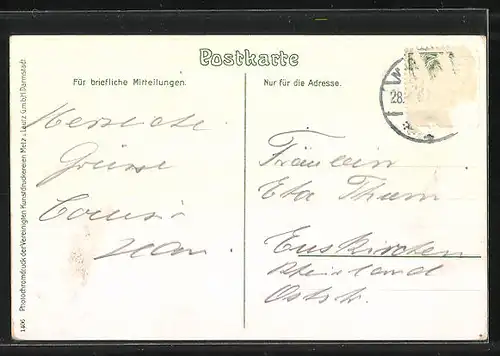 Postkarte
Für briefliche Mitteilungen.
Nur für die Adresse.
Herzliche
Grüsse
Fräulein
Eta Thurn
Euskirchen
Rheinland
Oststr.
28.
1406 Photochromdruck der Vereinigten Kunstdruckereien Metz & Lautz G.m.b.H. Darmstadt